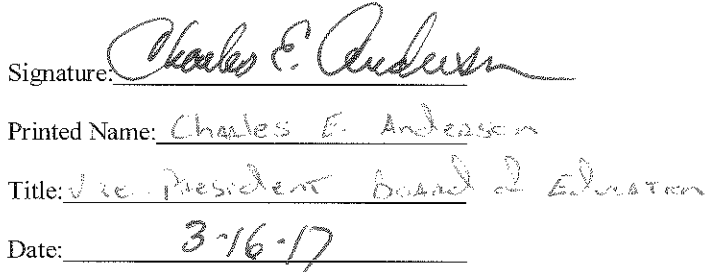 Signature: Charles E. Anderson
Printed Name: Charles E. Anderson
Title: Vice President Board of Education
Date: 3-16-17